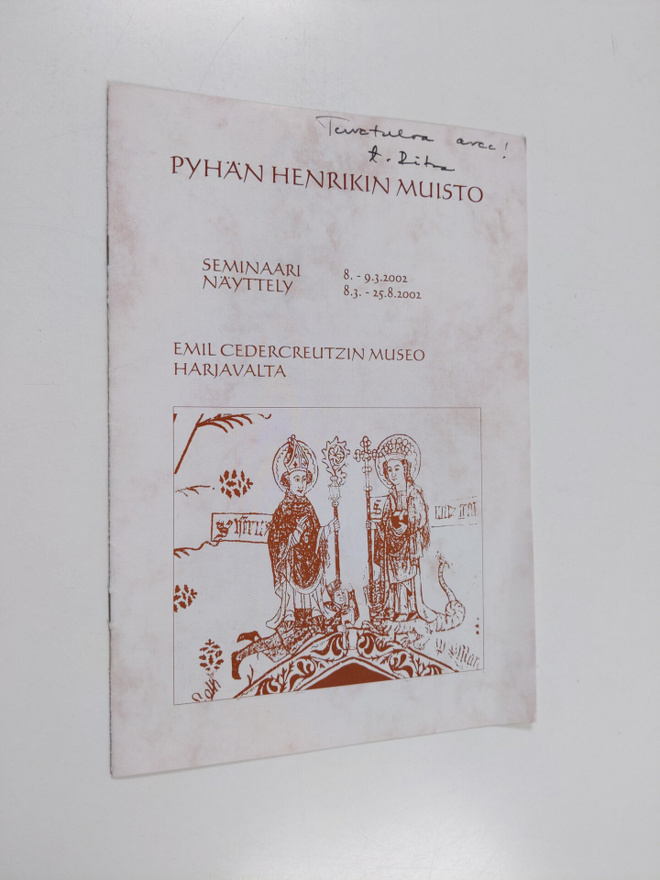 Tervetuloa avec!
t. Ritva
PYHÄN HENRIKIN MUISTO
SEMINAARI 8. - 9.3.2002
NÄYTTELY 8.3. - 25.8.2002
EMIL CEDERCREUTZIN MUSEO
HARJAVALTA